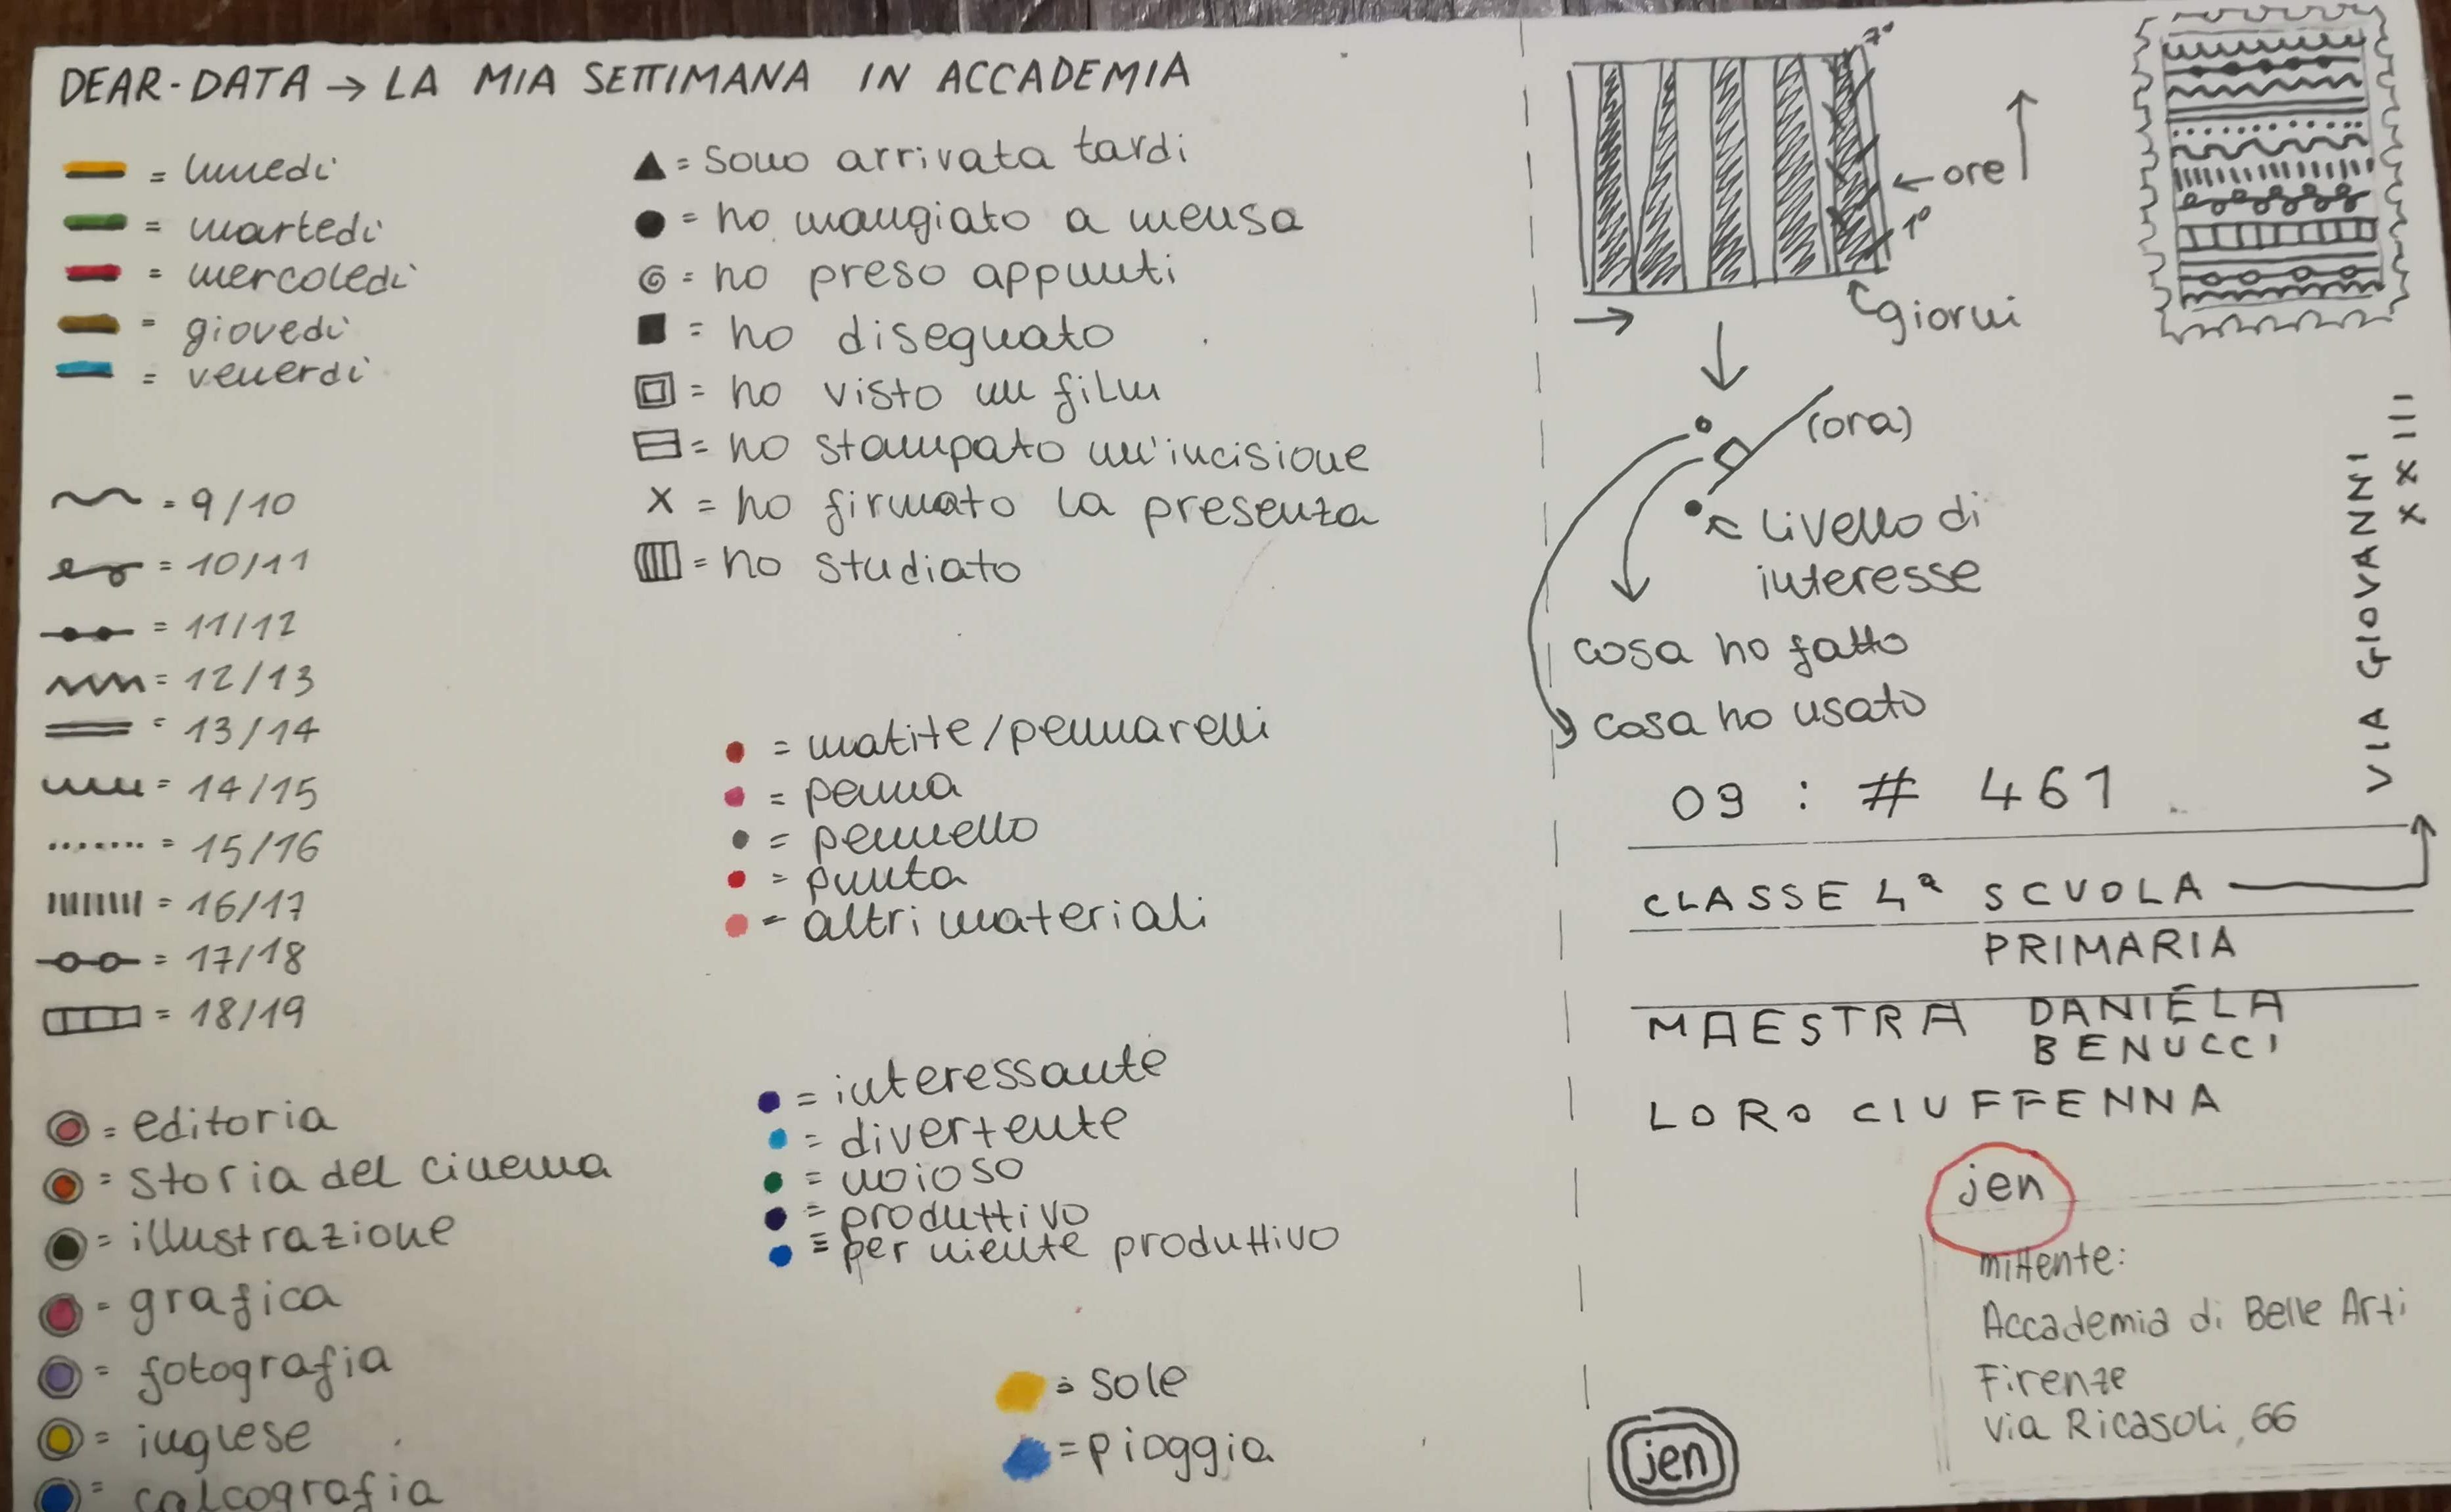 DEAR-DATA → LA MIA SETTIMANA IN ACCADEMIA
= lunedì
= martedì
= mercoledì
= giovedì
= venerdì
= 9/10
= 10/11
= 11/12
= 12/13
= 13/14
= 14/15
= 15/16
= 16/17
= 17/18
= 18/19
= editoria
= storia del cinema
= illustrazione
= grafica
= fotografia
= inglese
= calcografia
▲ = sono arrivata tardi
● = ho mangiato a mensa
= ho preso appunti
■ = ho disegnato
= ho visto un film
= ho stampato un'incisione
X = ho firmato la presenza
= ho studiato
= matite/pennarelli
= penna
= pennello
= punta
= altri materiali
= interessante
= divertente
= noioso
= produttivo
= per niente produttivo
= sole
= pioggia
7°
← ore
1°
giorni
(ora)
livello di
interesse
cosa ho fatto
cosa ho usato
09 : # 461
CLASSE 4ª SCUOLA
PRIMARIA
VIA GIOVANNI
XXIII
MAESTRA DANIELA
BENUCCI
LORO CIUFFENNA
jen
mittente:
Accademia di Belle Arti
Firenze
via Ricasoli, 66
jen